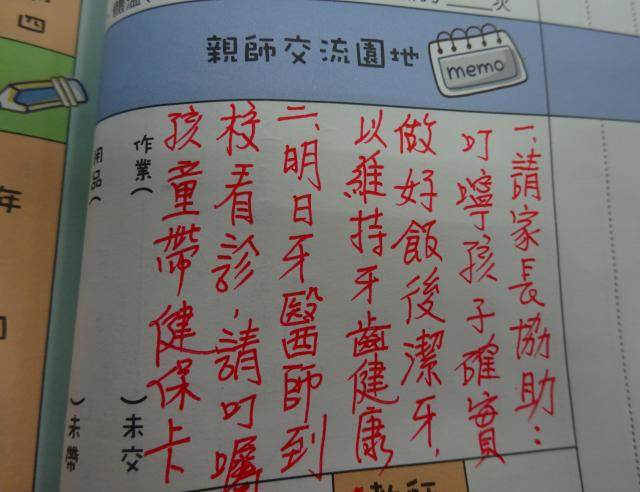 親師交流園地
memo
一、請家長協助：
叮嚀孩子確實
做好飯後潔牙，
以維持牙齒健康
二、明日牙醫師到
校看診，請叮囑
孩童帶健保卡
作業（
）未交
用品（
）未帶
次
四
年